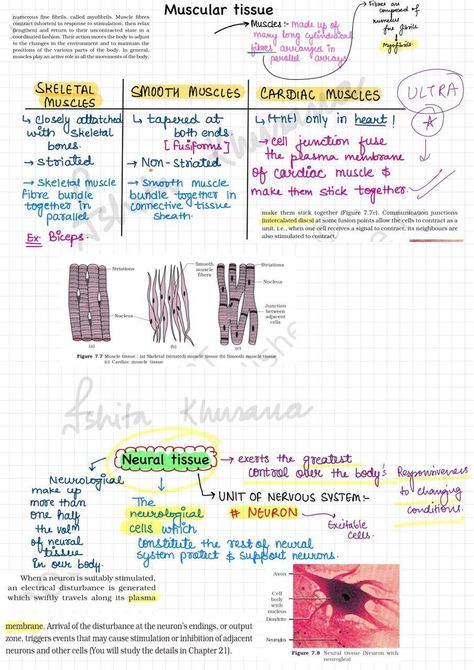 Muscular tissue
numerous fine fibrils, called myofibrils. Muscle fibres
contract (shorten) in response to stimulation, then relax
(lengthen) and return to their uncontracted state in a
coordinated fashion. Their action moves the body to adjust
to the changes in the environment and to maintain the
positions of the various parts of the body. In general,
muscles play an active role in all the movements of the body.
Muscles:- made up of
many long cylindrical
fibres arranged in
parallel arrays
Fibres are
composed of
numerous
fine fibrils
Myofibrils
SKELETAL
MUSCLES
↳ closely attached
with skeletal
bones.
→ striated
→ Skeletal muscle
Fibre bundle
together in
parallel
Ex: Biceps.
SMOOTH MUSCLES
↳ tapered at
both ends.
[fusiforms]
→ Non-striated
→ Smooth muscle
bundle together in
connective tissue
sheath.
CARDIAC MUSCLES
↳ only in heart!
→ cell junction fuse
the plasma membrane
of cardiac muscle &
make them stick together.
ULTRA
make them stick together (Figure 7.7c). Communication junctions
(intercalated discs) at some fusion points allow the cells to contract as a
unit, i.e., when one cell receives a signal to contract, its neighbours are
also stimulated to contract.
Striations
Nucleus
Smooth
muscle
fibers
Striations
Nucleus
Junction
between
adjacent
cells
(a)
(b)
(c)
Figure 7.7 Muscle tissue : (a) Skeletal (striated) muscle tissue (b) Smooth muscle tissue
(c) Cardiac muscle tissue
Ishita Khurana
Neural tissue
→ exerts the greatest
control over the body's
Responsiveness
to changing
conditions.
Neurological
make up
more than
one half
the volm
of neural
tissue
in our body.
The
neurological
cells which
constitute the rest of neural
system protect & support neurons.
UNIT OF NERVOUS SYSTEM:-
# NEURON
Excitable
cells.
When a neuron is suitably stimulated,
an electrical disturbance is generated
which swiftly travels along its plasma
membrane. Arrival of the disturbance at the neuron's endings, or output
zone, triggers events that may cause stimulation or inhibition of adjacent
neurons and other cells (You will study the details in Chapter 21).
Axon
Cell
body
with
nucleus
Dendrite
Neuroglea
Figure 7.8 Neural tissue (Neuron with
neuroglea)